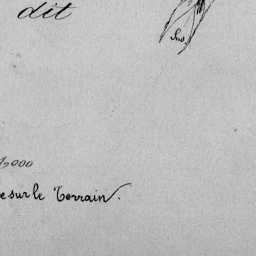 dit
5000
e sur le Terrain.